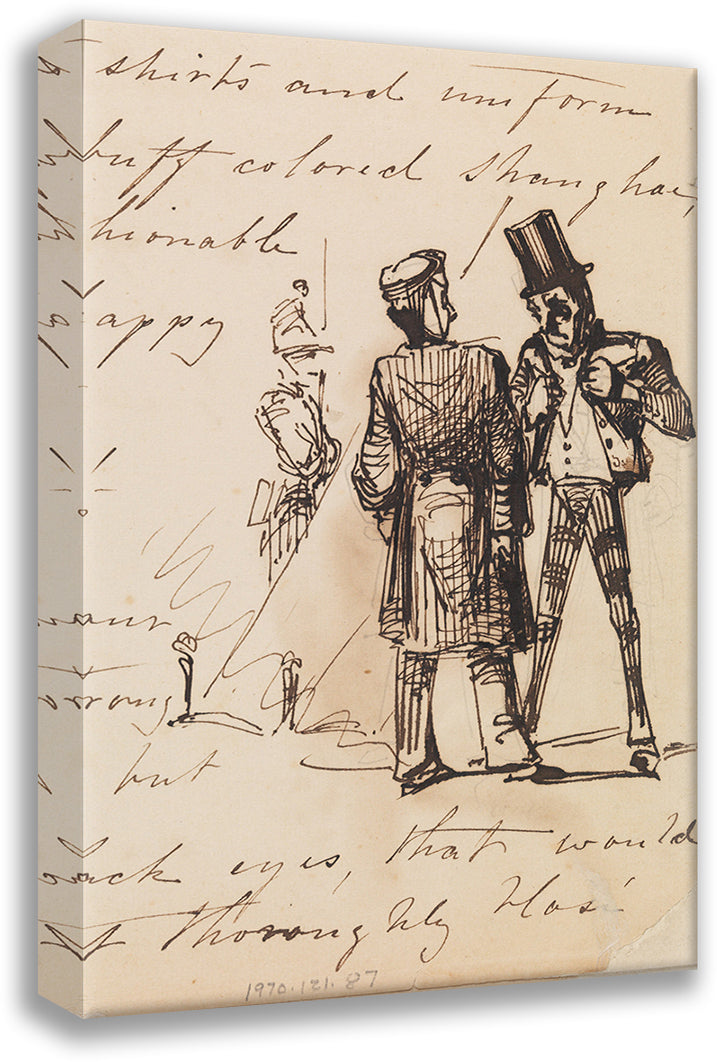 shirts and uniform
buff colored Shanghai,
hionable
appy
our
rong
but
ack eyes, that would
thoroughly blasé
1970.121.87